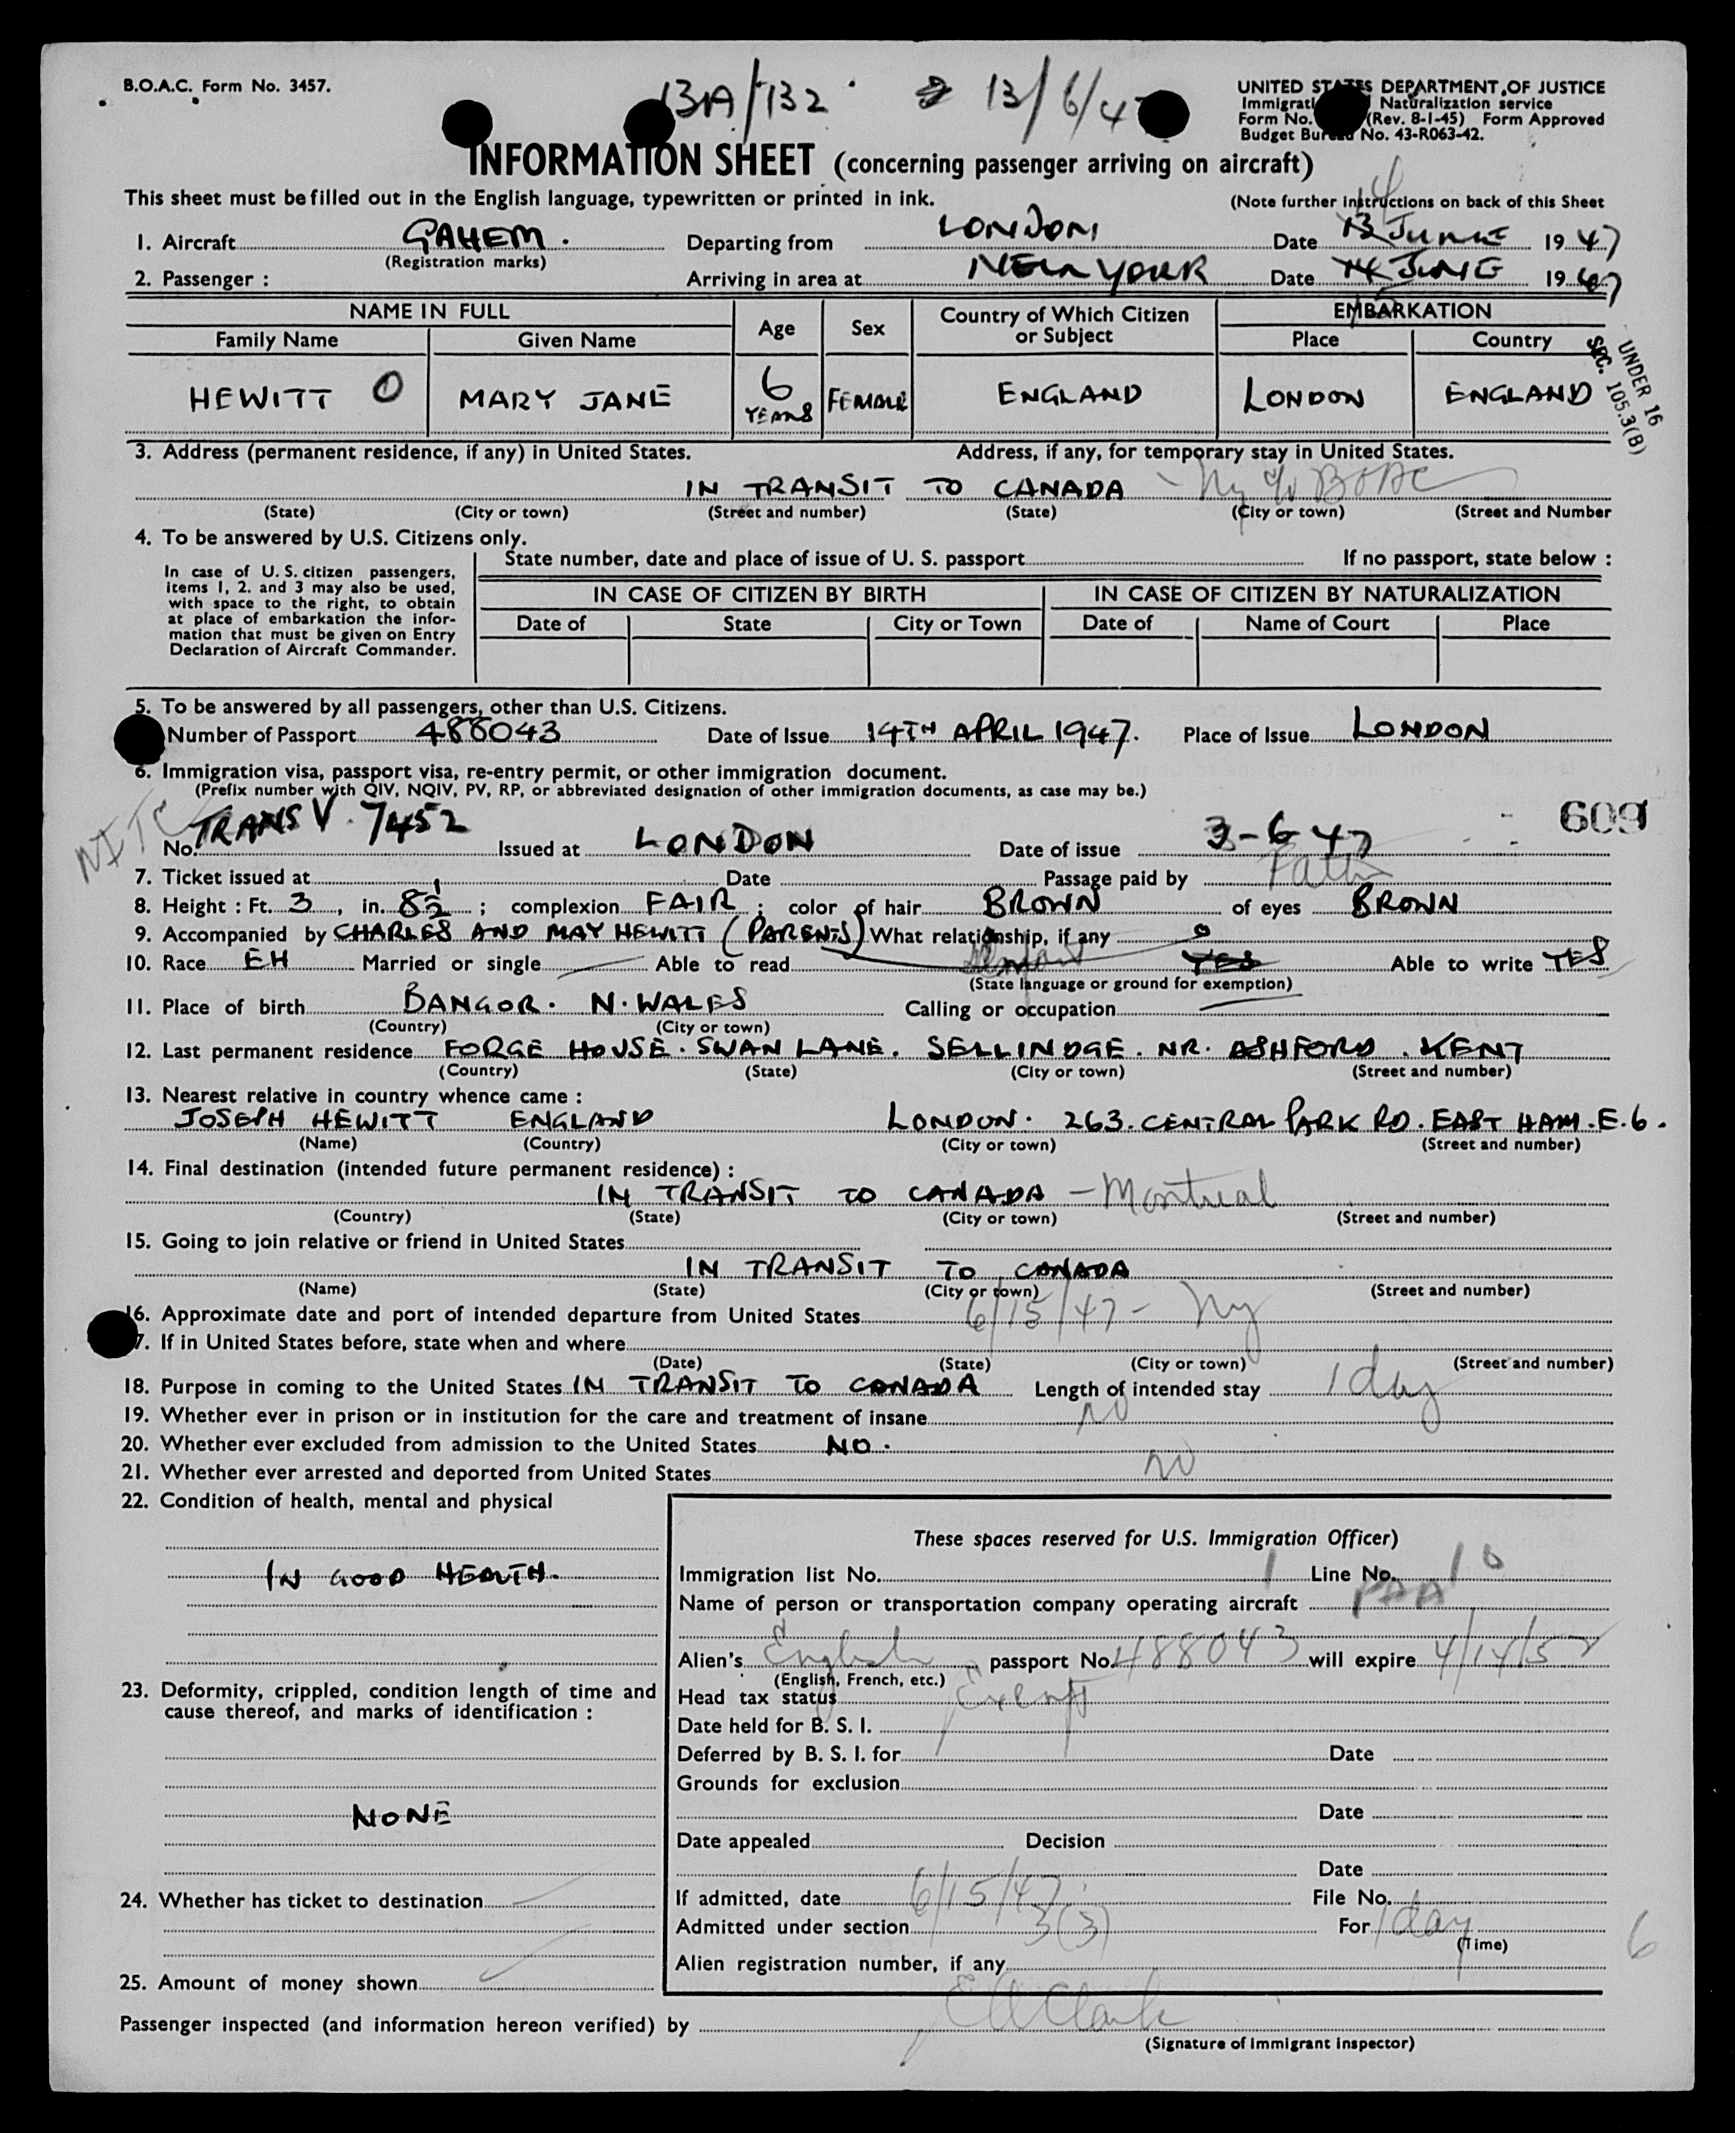 B.O.A.C. Form No. 3457.
13A/132 13/6/4
UNITED STATES DEPARTMENT OF JUSTICE
Immigrati Naturalization service
Form No. (Rev. 8-1-45) Form Approved
Budget Bureau No. 43-R063-42.
INFORMATION SHEET (concerning passenger arriving on aircraft)
This sheet must be filled out in the English language, typewritten or printed in ink. (Note further instructions on back of this Sheet
14
1. Aircraft GAHEM. Departing from LONDON Date 13 JUNE 1947
(Registration marks)
2. Passenger : Arriving in area at NEW YORK Date 14 JUNE 1947
NAME IN FULL Age Sex Country of Which Citizen or Subject EMBARKATION
Family Name Given Name Place Country
HEWITT 0 MARY JANE 6 YEARS FEMALE ENGLAND LONDON ENGLAND
UNDER 16
SEC. 105.3(B)
3. Address (permanent residence, if any) in United States. Address, if any, for temporary stay in United States.
IN TRANSIT TO CANADA - Ny c/o BOAC
(State) (City or town) (Street and number) (State) (City or town) (Street and Number
4. To be answered by U.S. Citizens only.
State number, date and place of issue of U. S. passport If no passport, state below :
In case of U. S. citizen passengers,
items 1, 2. and 3 may also be used,
with space to the right, to obtain
at place of embarkation the infor-
mation that must be given on Entry
Declaration of Aircraft Commander.
IN CASE OF CITIZEN BY BIRTH IN CASE OF CITIZEN BY NATURALIZATION
Date of State City or Town Date of Name of Court Place
5. To be answered by all passengers, other than U.S. Citizens.
Number of Passport 488043 Date of Issue 14TH APRIL 1947. Place of Issue LONDON
6. Immigration visa, passport visa, re-entry permit, or other immigration document.
(Prefix number with QIV, NQIV, PV, RP, or abbreviated designation of other immigration documents, as case may be.)
609
No. TRANS V. 7452 Issued at LONDON Date of issue 3-6-47
7. Ticket issued at Date Passage paid by Father
8. Height : Ft. 3, in. 8½ ; complexion FAIR ; color of hair BROWN of eyes BROWN
9. Accompanied by CHARLES AND MAY HEWITT (PARENTS) What relationship, if any
10. Race EH Married or single Able to read YES Able to write YES
(State language or ground for exemption)
11. Place of birth BANGOR. N. WALES Calling or occupation
(Country) (City or town)
12. Last permanent residence FORGE HOUSE. SWAN LANE. SELLINDGE. NR. ASHFORD. KENT
(Country) (State) (City or town) (Street and number)
13. Nearest relative in country whence came :
JOSEPH HEWITT ENGLAND LONDON. 263. CENTRAL PARK RD. EAST HAM. E.6.
(Name) (Country) (City or town) (Street and number)
14. Final destination (intended future permanent residence) :
IN TRANSIT TO CANADA - Montreal
(Country) (State) (City or town) (Street and number)
15. Going to join relative or friend in United States
IN TRANSIT TO CANADA
(Name) (State) (City or town) (Street and number)
16. Approximate date and port of intended departure from United States 6/15/47 - Ny
7. If in United States before, state when and where
(Date) (State) (City or town) (Street and number)
18. Purpose in coming to the United States IN TRANSIT TO CANADA Length of intended stay 1 day
19. Whether ever in prison or in institution for the care and treatment of insane no
20. Whether ever excluded from admission to the United States NO.
21. Whether ever arrested and deported from United States no
22. Condition of health, mental and physical
IN GOOD HEALTH.
23. Deformity, crippled, condition length of time and
cause thereof, and marks of identification :
NONE
24. Whether has ticket to destination
25. Amount of money shown
These spaces reserved for U.S. Immigration Officer)
Immigration list No. 1 Line No. 10
Name of person or transportation company operating aircraft PAA
Alien's English passport No. 488043 will expire 4/14/52
(English, French, etc.)
Head tax status Exempt
Date held for B. S. I.
Deferred by B. S. I. for Date
Grounds for exclusion
Date
Date appealed Decision
Date
If admitted, date 6/15/47 File No.
Admitted under section 3(3) For 1 day
(Time)
6
Alien registration number, if any
Passenger inspected (and information hereon verified) by E W Clark
(Signature of Immigrant Inspector)